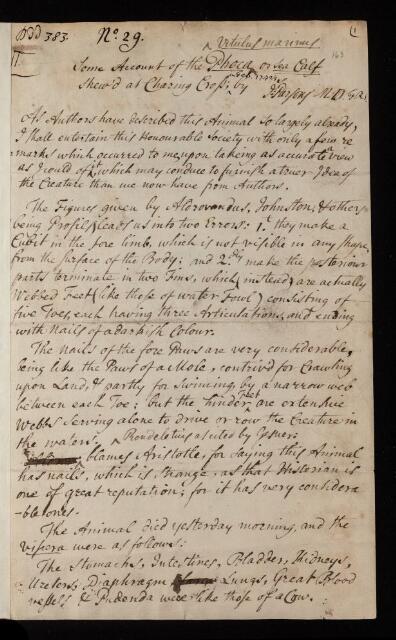 Add 383.
No. 29.
(1
163
Vitulus marinus
Some Account of the Phoca, or Sea Calf
shew'd at Charing Cross, by
J. Parsons M.D.
As Authors have described this Animal so largely already,
I shall entertain this Honourable Society with only a few re
marks which occurred to me, upon taking as accurate a view
as I could of it, which may conduce to furnish a truer Idea of
the Creature than we now have from Authors.
The Figures given by Aldrovandus, Johnston, & others
being Profiles, leads us into two Errors: 1st they make a
Cubit in the fore limb, which is not visible in any Shape
from the Surface of the Body; and 2dly make the posteriour
parts terminate in two Fins, which instead are actually
Webbed Feet (like those of water Fowl) consisting of
five Toes, each having three Articulations, and ending
with Nails of a darkish Colour.
The Nails of the fore Paws are very considerable,
being like the Paws of a Mole, contriv'd for Crawling
upon Land, & partly for swiming, by a narrow web
between each Toe; but the hinder Feet are extensive
Webbs serving alone to drive or row the Creature in
the waters.
Rondeletius as cited by Gesner
blames Aristotle, for saying this Animal
has nails, which is strange, as that Historian is
one of great reputation; for it has very considera
-ble ones.
The Animal died yesterday morning, and the
viscera were as follows:
The Stomachs, Intestines, Bladder, Kidneys,
Ureters, Diaphragm Lungs, Great Blood
vessels & Pudenda were like those of a Cow.